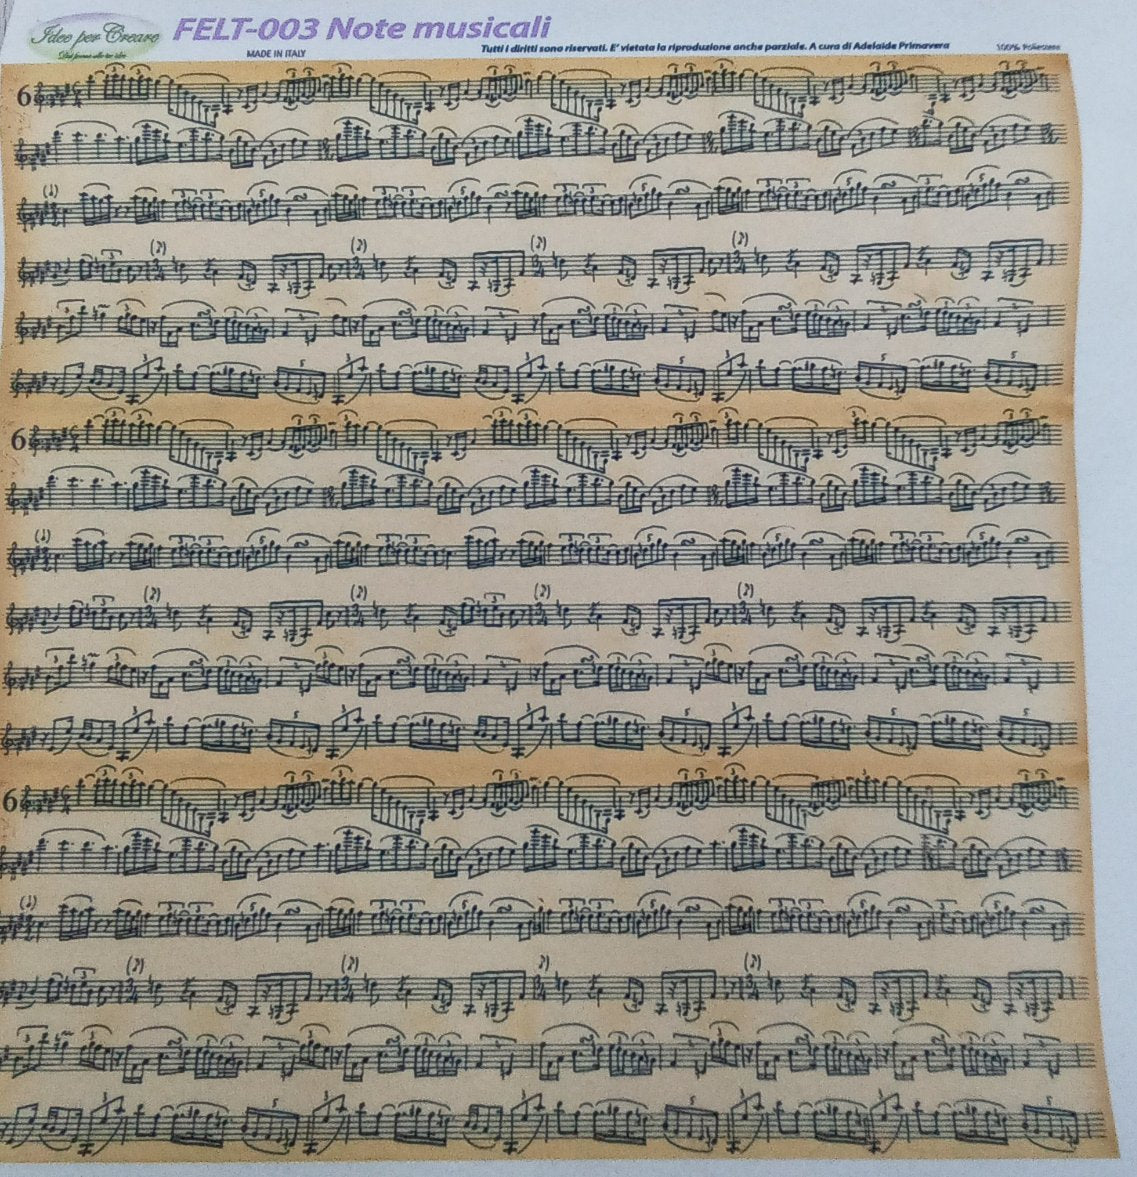 Idee per Creare
Dai forma alle tue idee
FELT-003 Note musicali
MADE IN ITALY
Tutti i diritti sono riservati. E' vietata la riproduzione anche parziale. A cura di Adelaide Primavera
100% Poliestere
6
6
6